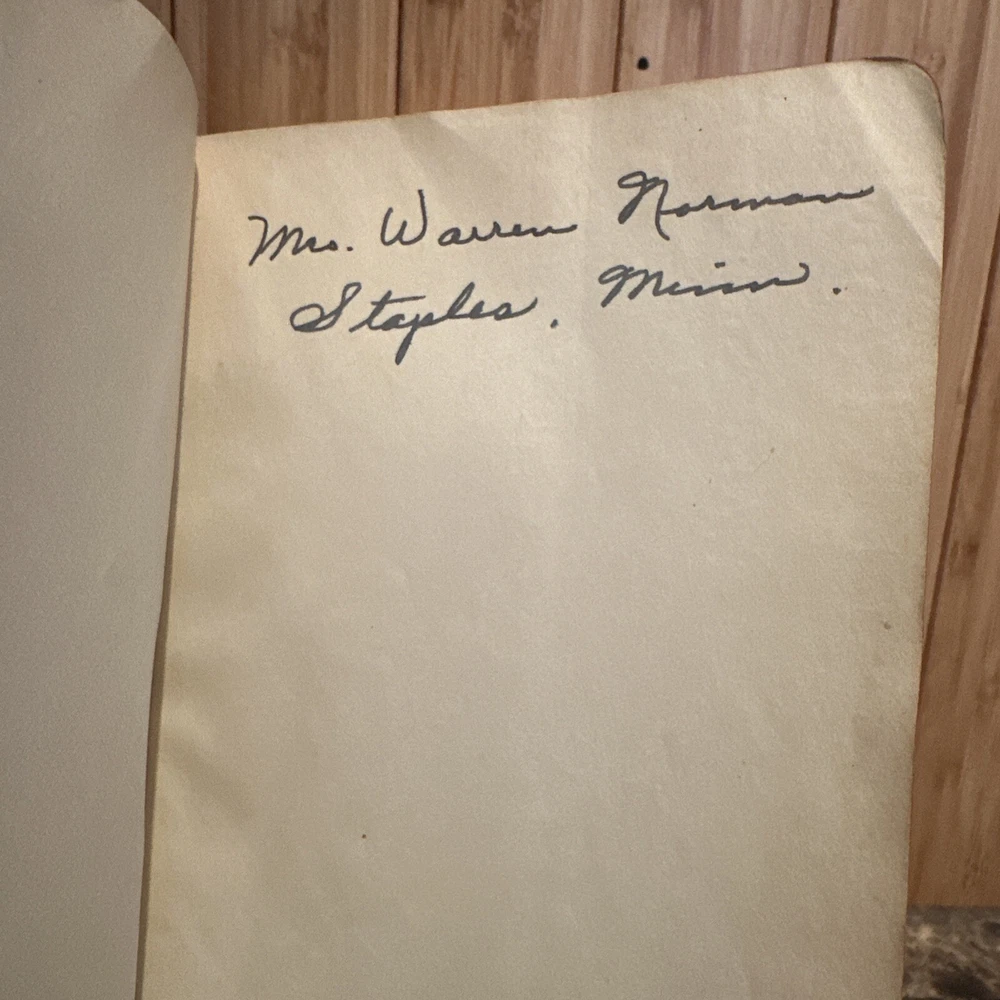 Mrs. Warren Norman
Staples, Minn.